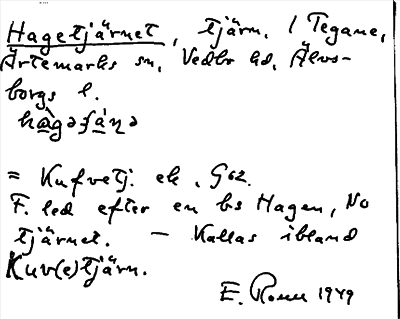 Hagetjärnet, tjärn. / Tegane,
Ärtemarks sn, Vedbo hd, Älvs-
borgs l.
= Kufvetj. ek. G62.
F. led efter en bs Hagen, No
tjärnet. — Kallas ibland
Kuv(e)tjärn.
E. Rosell 1949